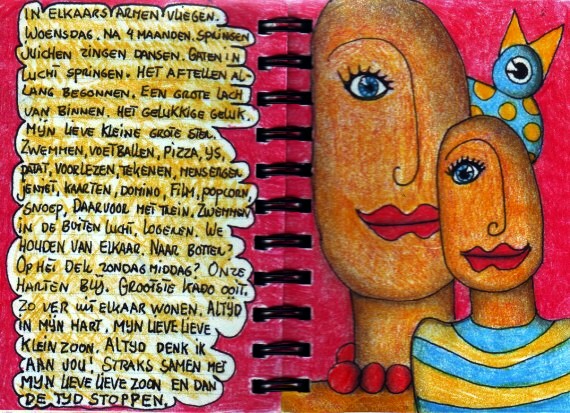 IN ELKAARS ARMEN VLIEGEN.
WOENSDAG. NA 4 MAANDEN. SPRINGEN
JUICHEN ZINGEN DANSEN. GATEN IN
LUCHT SPRINGEN. HET AFTELLEN AL-
LANG BEGONNEN. EEN GROTE LACH
VAN BINNEN. HET GELUKKIGE GELUK.
MIJN LIEVE KLEINE GROTE STER.
ZWEMMEN, VOETBALLEN, PIZZA, IJS,
PATAT, VOORLEZEN, TEKENEN, MENSERGER
JENIET, KAARTEN, DOMINO, FILM, POPCORN,
SNOEP, DAARVOOR MET TREIN. ZWEMMEN
IN DE BUITEN LUCHT, LOGEREN. WE
HOUDEN VAN ELKAAR. NAAR BOTTER?
OP HET DEK. ZONDAGMIDDAG? ONZE
HARTEN BLIJ. GROOTSTE KADO OOIT.
ZO VER UIT ELKAAR WONEN. ALTIJD
IN MIJN HART. MIJN LIEVE LIEVE
KLEINZOON. ALTIJD DENK IK
AAN JOU! STRAKS SAMEN MET
MIJN LIEVE LIEVE ZOON EN DAN
DE TIJD STOPPEN.